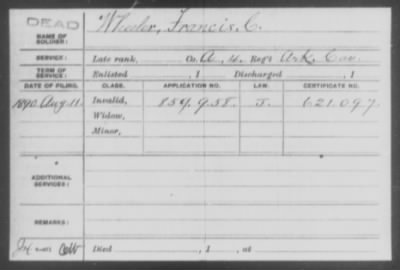 DEAD
NAME OF SOLDIER: Wheeler, Francis, C.
SERVICE: Late rank, Co. A, 4, Reg't Ark. Cav.
TERM OF SERVICE: Enlisted , 1 Discharged , 1
DATE OF FILING. CLASS. APPLICATION NO. LAW. CERTIFICATE NO.
1890, Aug. 11 Invalid, 859.958. J. 621.097
Widow,
Minor,
ADDITIONAL SERVICES:
REMARKS:
Died , 1 , at